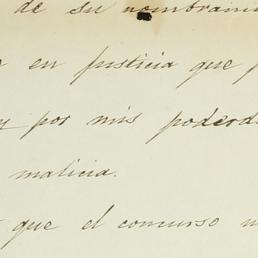 de su nombrami
en justicia que p
y por mis poderd
malicia.
que el concurso n